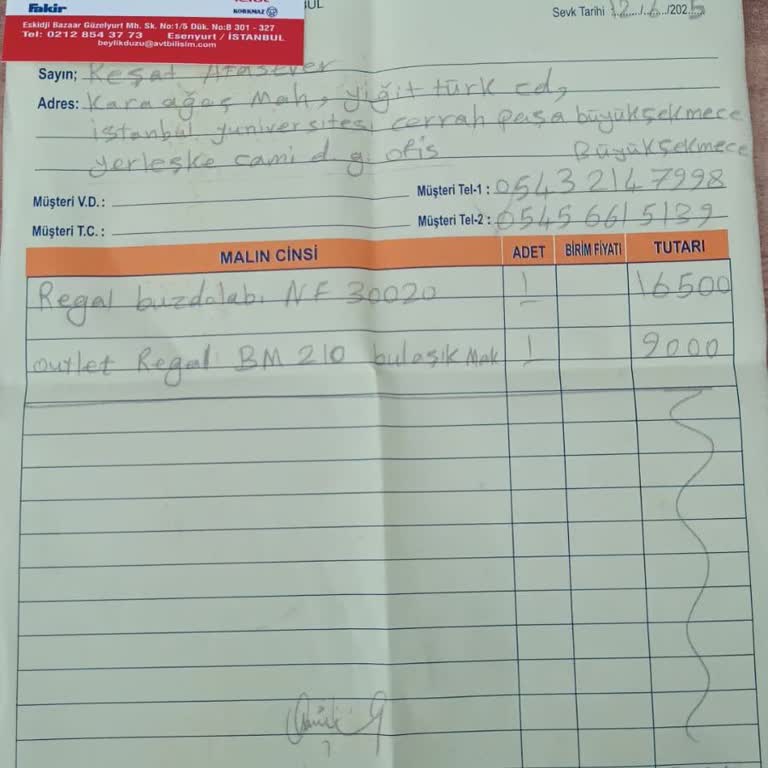 Fakir
KORKMAZ
Eskidji Bazaar Güzelyurt Mh. Sk. No:1/5 Dük. No:B 301 - 327
Tel: 0212 854 37 73 Esenyurt / İSTANBUL
beylikduzu@avtbilisim.com
BUL
Sevk Tarihi : 12../..6../2025
Sayın; Reşat
Adres: Karaağaç Mah, yiğit türk cd,
istanbul yuniversitesi cerrah paşa büyükşekmece
yerleşke cami d.g. ofis Büyükşekmece
Müşteri V.D.:
Müşteri Tel-1 : 0543 214 7998
Müşteri T.C.:
Müşteri Tel-2 : 0545 661 5139
MALIN CİNSİ ADET BİRİM FİYATI TUTARI
Regal buzdolabı NF 30020 1 16500
outlet Regal BM 210 bulaşık Mak 1 9000